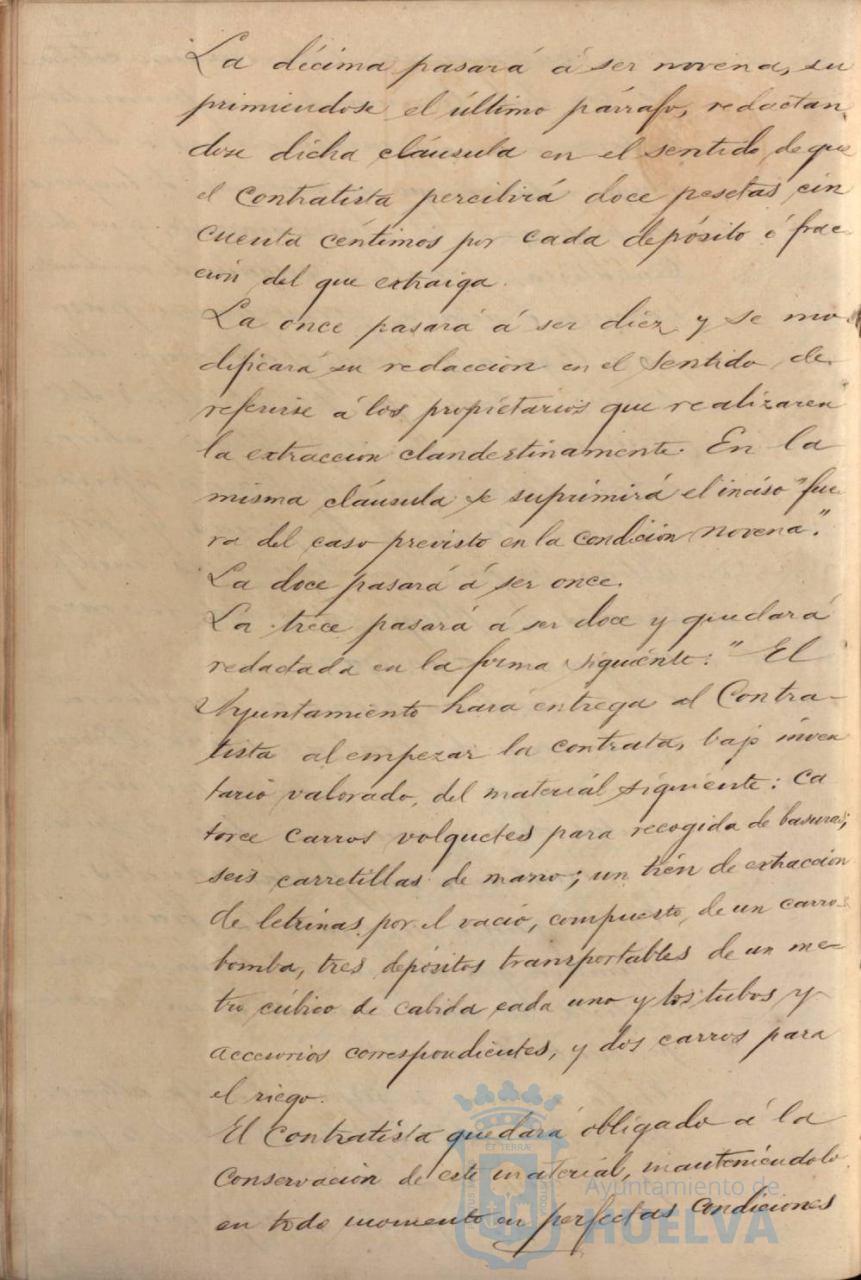 La décima pasará á ser novena, su
primiendose el último párrafo, redactan
dose dicha cláusula en el sentido de que
el Contratista percibirá doce pesetas cin
cuenta céntimos por cada depósito ó frac-
ción del que extraiga.
La once pasará á ser diez y se mo-
dificará su redacción en el sentido de
referirse á los propietarios que realizaren
la extracción clandestinamente. En la
misma cláusula se suprimirá el inciso "fue
ra del caso previsto en la condición novena".
La doce pasará á ser once.
La trece pasará á ser doce y quedará
redactada en la forma siguiente: "El
Ayuntamiento hará entrega al Contra-
tista al empezar la contrata, bajo inven
tario valorado, del material siguiente: Ca
torce carros volquetes para recogida de basuras;
seis carretillas de mano; un trén de extracción
de letrinas por el vacio, compuesto de un carro-
bomba, tres depósitos transportables de un me-
tro cúbico de cabida cada uno y los tubos y
accesorios correspondientes, y dos carros para
el riego.
El Contratista quedará obligado á la
Conservación de este material, manteniéndolo
en todo momento en perfectas condiciones
Ayuntamiento de
HUELVA